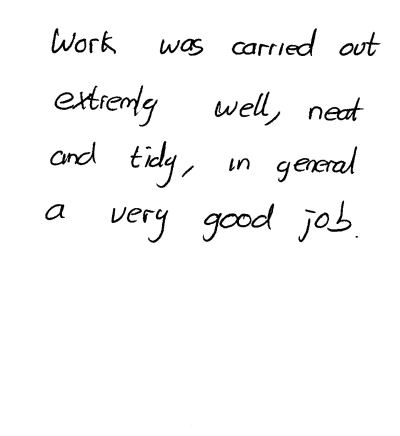 Work was carried out
extremly well, neat
and tidy, in general
a very good job.